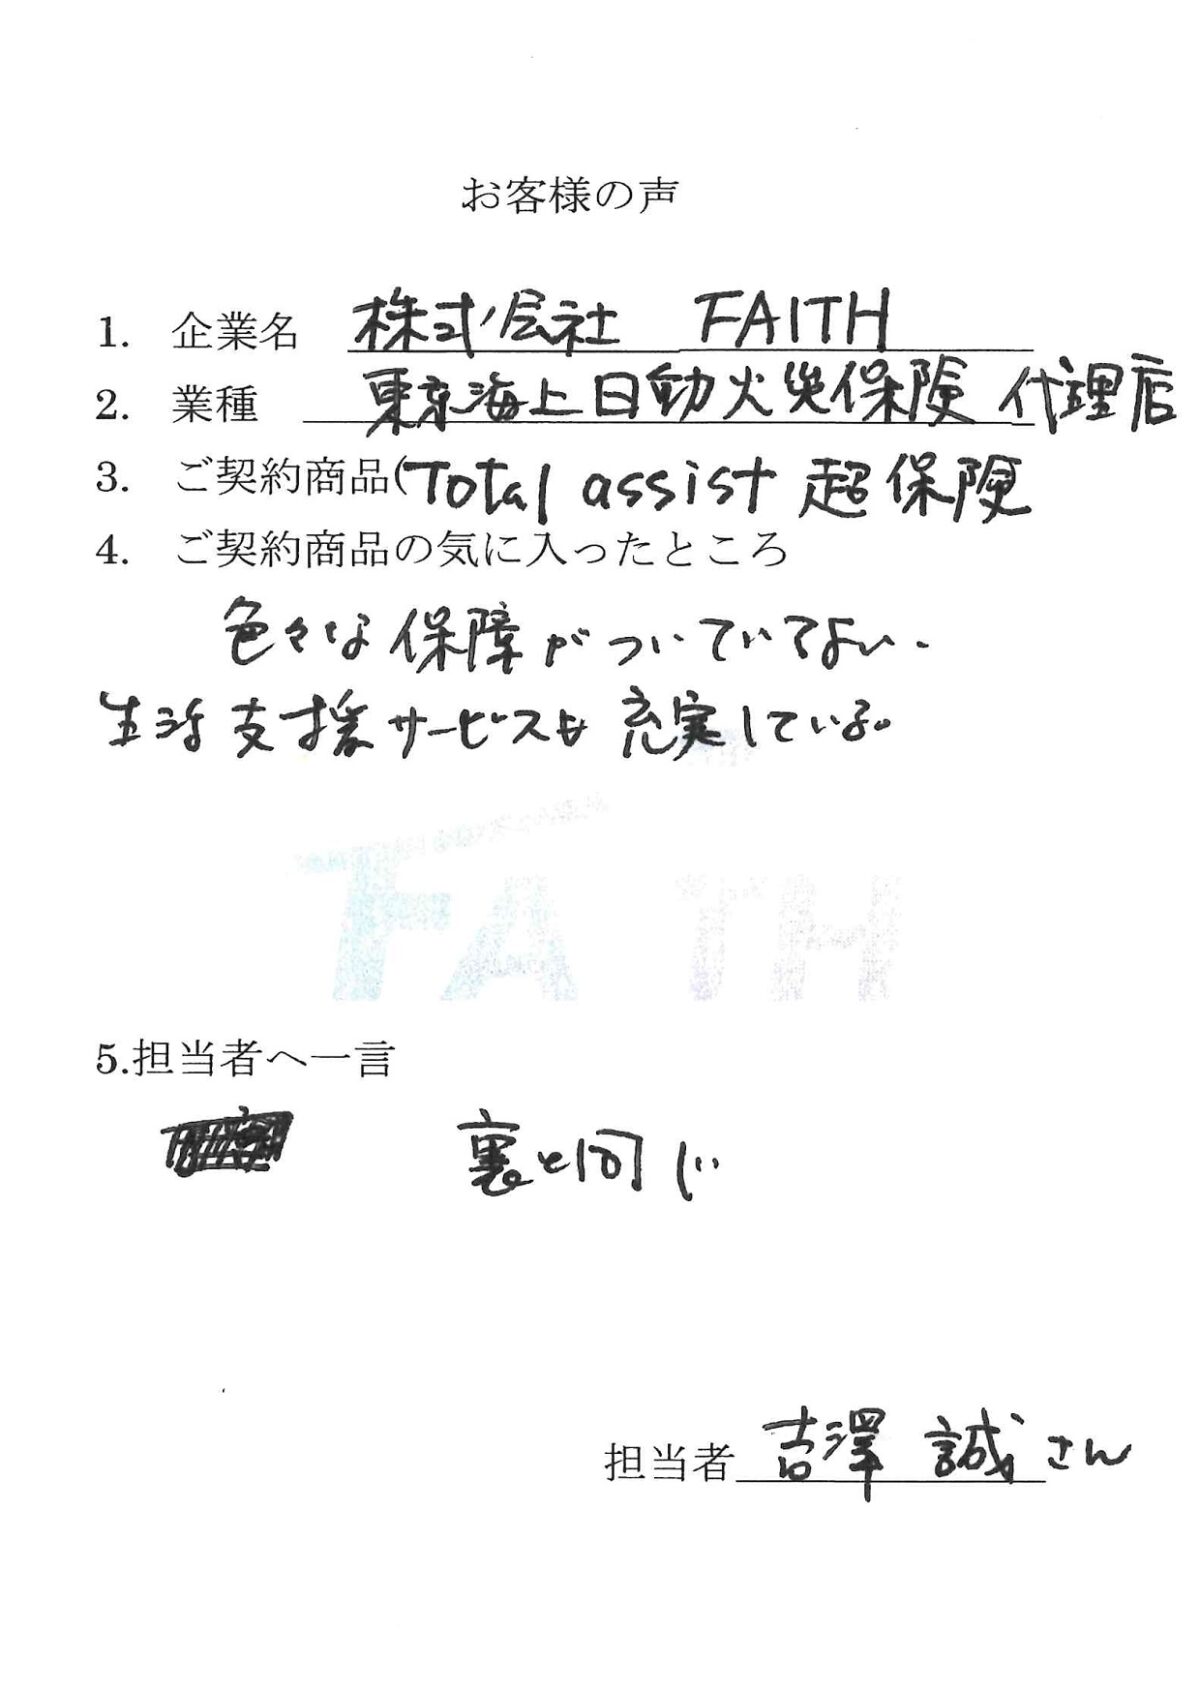 お客様の声
1. 企業名 株式会社 FAITH
2. 業種 東京海上日動火災保険 代理店
3. ご契約商品(Total assist 超保険
4. ご契約商品の気に入ったところ
色々な保障がついていてよい。
生活支援サービスも充実している。
FAITH
5.担当者へ一言
裏と同じ
担当者 吉澤 誠さん